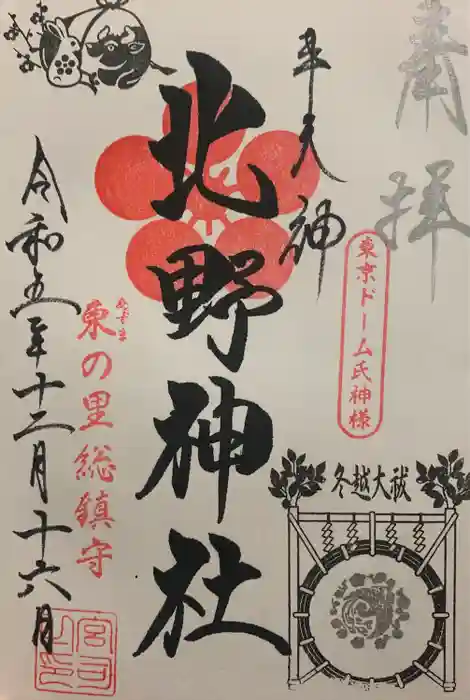 奉拝
東京ドーム氏神様
牛天神
北野神社
あづま
東の里総鎮守
令和五年十二月十六日
冬越大祓
宮司之印